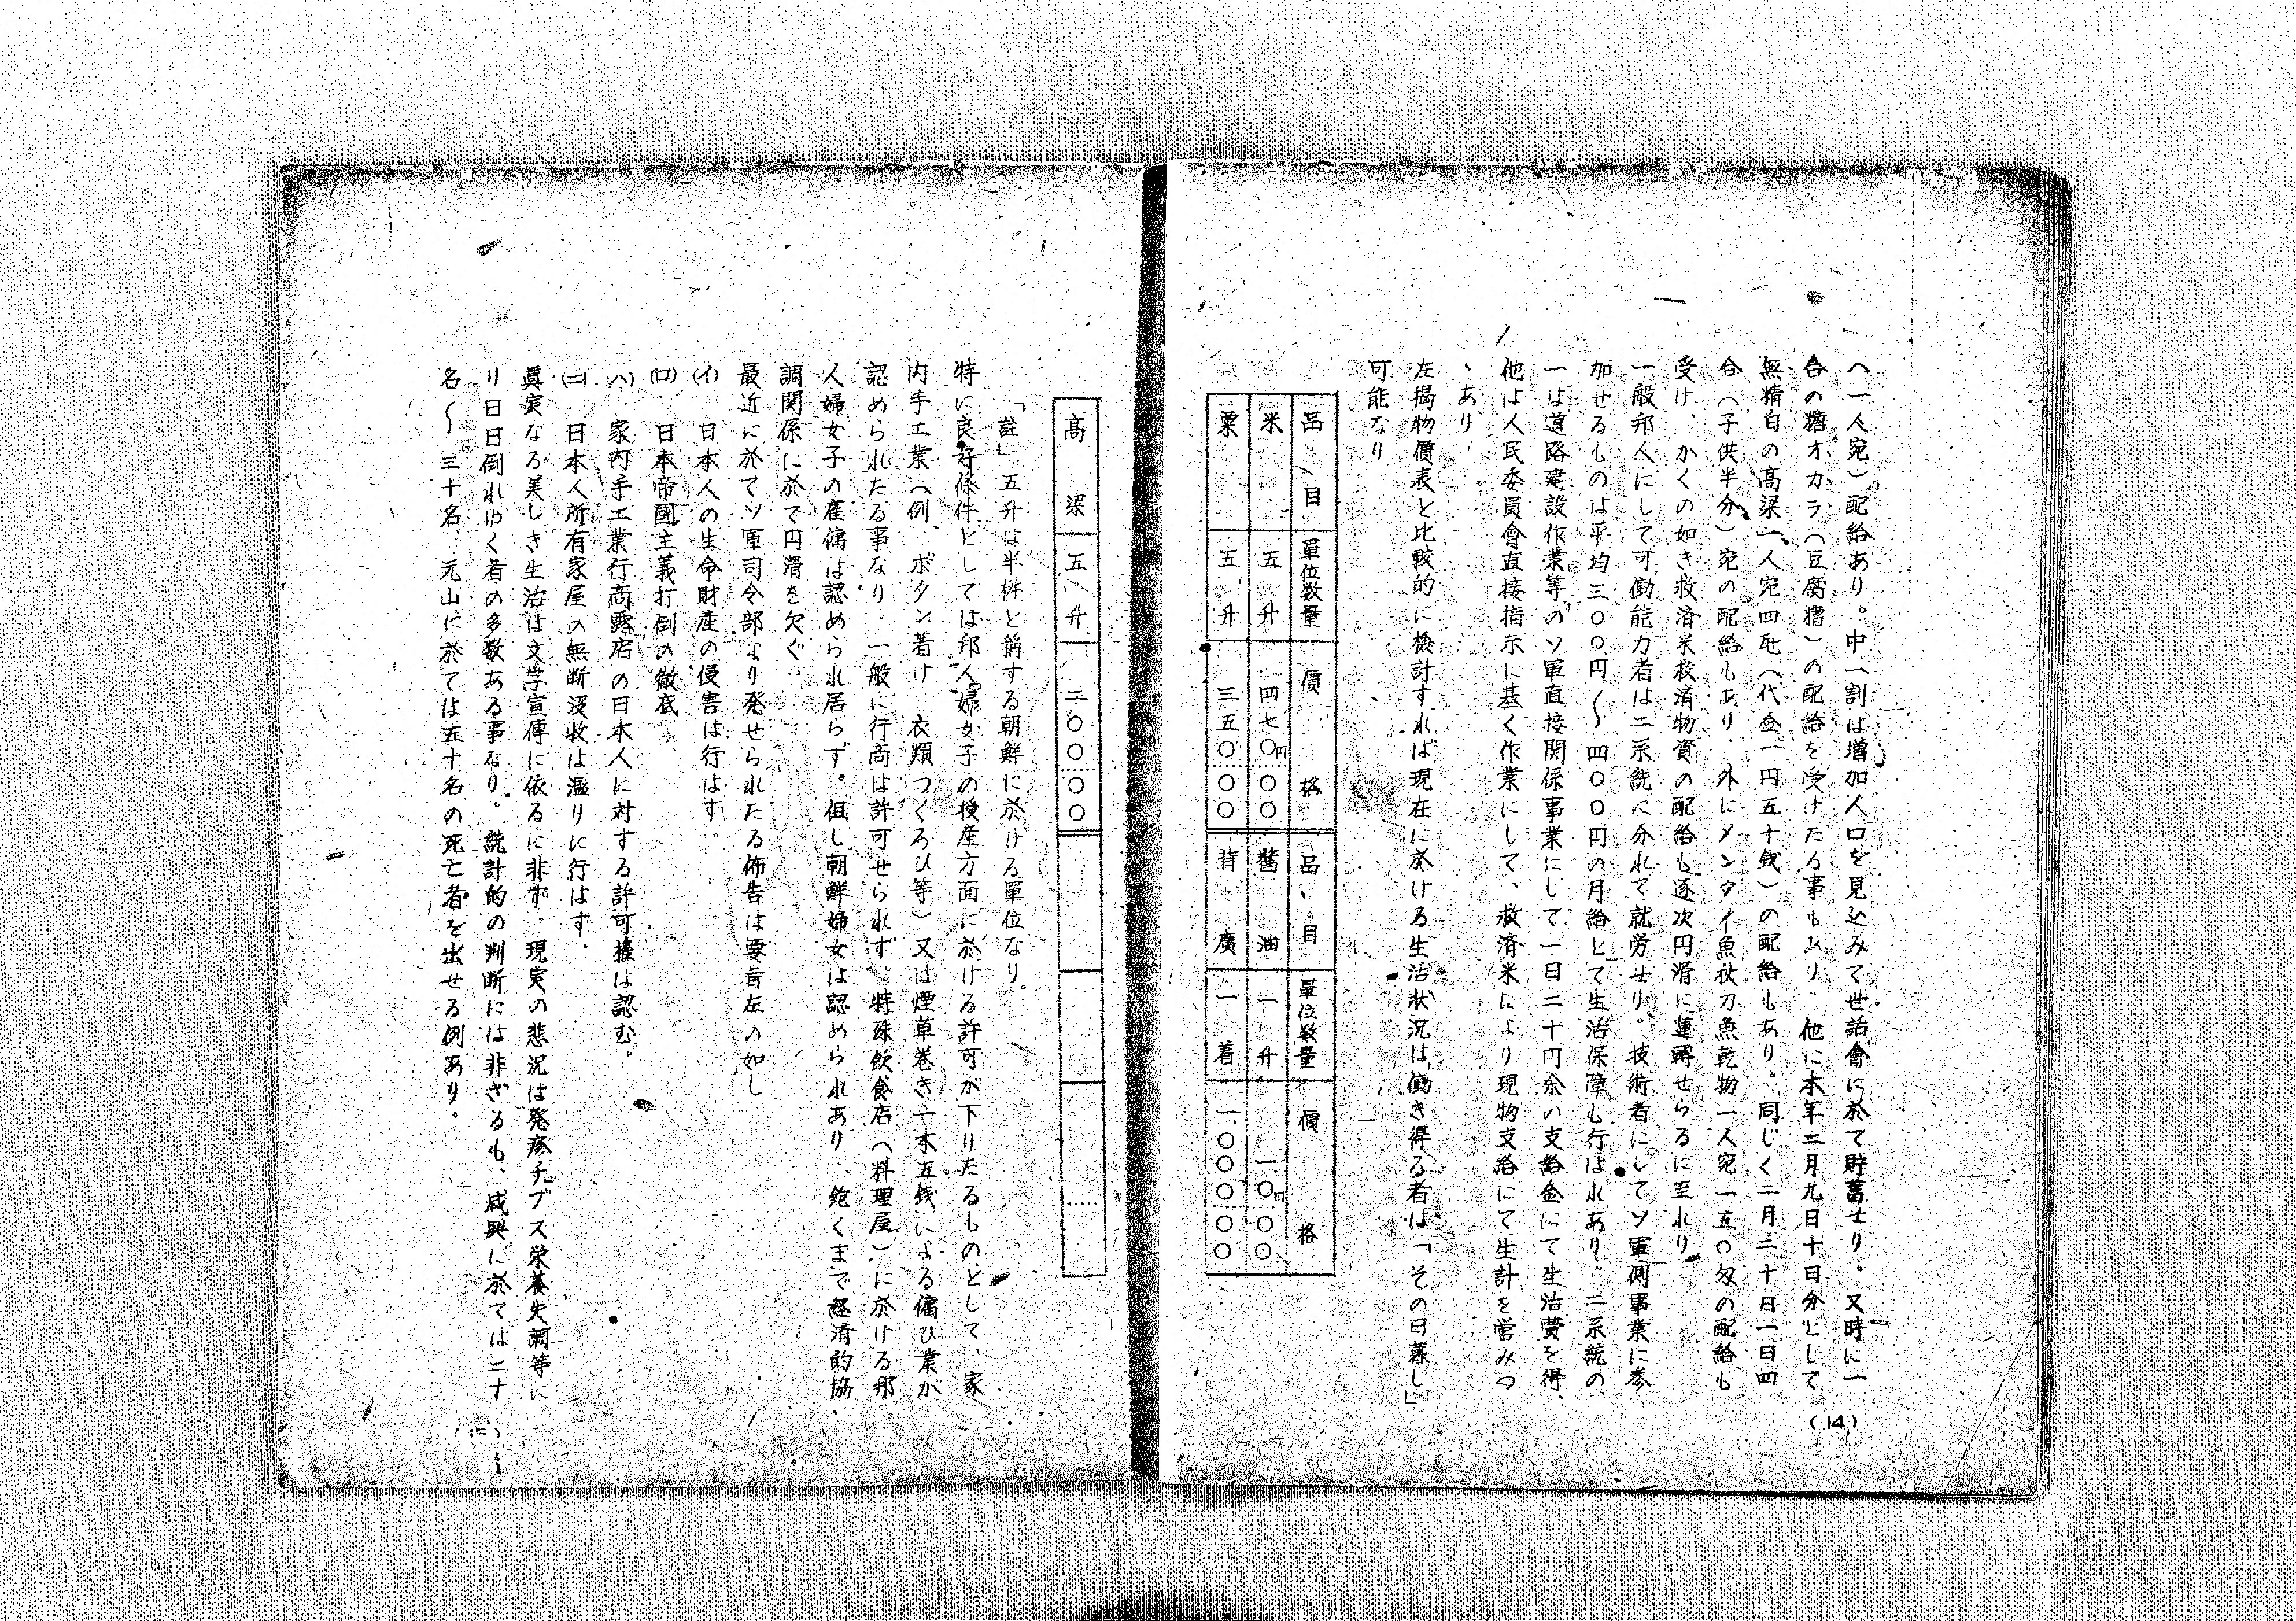 (14)
(一人宛)配給あり。中一割は増加人口を見込みて世話會に於て貯蓄せり。又時に一
合の糟オカラ(豆腐糟)の配給を受けたる事もあり、他に本年二月九日十日分として
無精白の髙梁一人宛四瓩(代金一円五十銭)の配給もあり。同じく二月三十日一日四
合(子供半分)宛の配給もあり、外にメンタイ魚秋刀魚乾物一人宛一五〇匁の配給も
受け、かくの如き救済米救済物資の配給も逐次円滑に運轉せらるに至れり
一般邦人にして可働能力者は二系統に分れて就労せり。技術者にしてソ軍側事業に参
加せるものは平均三〇〇円〜四〇〇円の月給とて生活保障も行はれあり。二系統の
一は道路建設作業等のソ軍直接関係事業にして一日二十円余の支給金にて生活費を得、
他は人民委員會直接指示に基く作業にして、救済米により現物支給にて生計を営みつ
ゝあり
左掲物價表と比較的に検討すれば現在に於ける生活状況は働き得る者は「その日暮し」
可能なり
品目 單位数量 價格 品目 單位数量 價格
米 五升 四七〇円〇〇 醤油 一升 一〇円〇〇
粟 五升 三五〇〇〇 背廣 一着 一、〇〇〇〇〇
髙梁 五升 二〇〇〇〇
「註」五升は半枡と稱する朝鮮に於ける單位なり。
特に良好條件としては邦人婦女子の授産方面に於ける許可が下りたるものとして、家
内手工業(例、ボタン着け 衣類つくろひ等)又は煙草巻き一本五銭による傭ひ業が
認められたる事なり。一般に行商は許可せられず、特殊飲食店(料理屋)に於ける邦
人婦女子の雇傭は認められ居らず。但し朝鮮婦女は認められあり、飽くまで経済的協
調関係に於て円滑を欠ぐ
最近に於てソ軍司令部より発せられたる佈告は要旨左の如し
(イ) 日本人の生命財産の侵害は行はず。
(ロ) 日本帝國主義打倒の徹底
(ハ) 家内手工業行商露店の日本人に対する許可權は認む。
(ニ) 日本人所有家屋の無断没收は濫りに行はず。
眞実なる美しき生活は文学宣傳に依るに非ず、現実の悲況は発疹チブス栄養失調等に
り日日倒れゆく者の多数ある事なり。統計的の判断には非ざるも、咸興に於ては二十
名〜三十名、元山に於ては五十名の死亡者を出せる例あり。
(15)